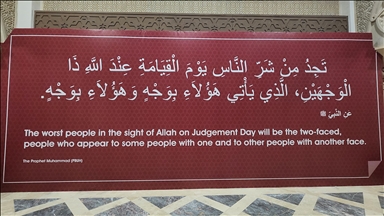 تَجِدُ مِنْ شَرِّ النَّاسِ يَوْمَ الْقِيَامَةِ عِنْدَ اللَّهِ ذَا
الْوَجْهَيْنِ، الَّذِي يَأْتِي هَؤُلَاءِ بِوَجْهٍ وَهَؤُلَاءِ بِوَجْهٍ.
عن النَّبِيّ ﷺ
The worst people in the sight of Allah on Judgement Day will be the two-faced,
people who appear to some people with one and to other people with another face.
The Prophet Muhammad (PBUH)